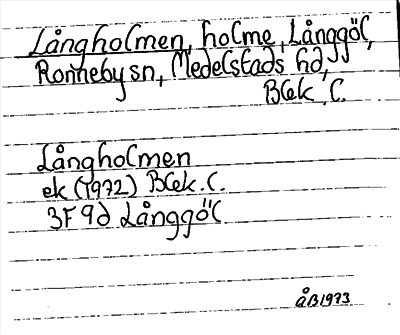 Långholmen, holme, Långgöl,
Ronneby sn, Medelstads hd,
Blek. l.
Långholmen
ek (1972) Blek. l.
3F 9d Långgöl
ÅB1973